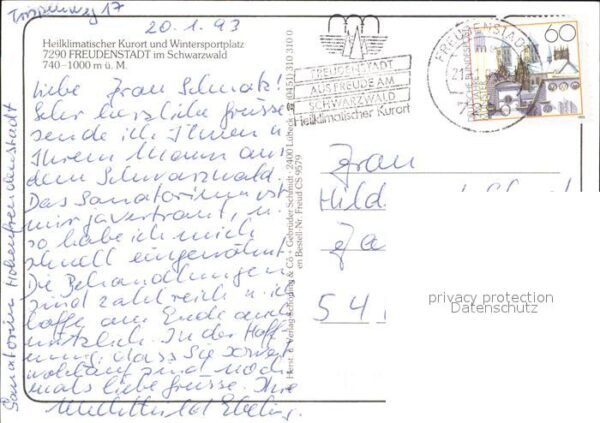 Trippenweg 17
20.1.93
Heilklimatischer Kurort und Wintersportplatz
7290 FREUDENSTADT im Schwarzwald
740-1000 m ü. M.
Liebe Frau Schmatz!
Sehr herzliche Grüsse
sende ich Ihnen u
Ihrem Mann aus
dem Schwarzwald.
Das Sanatorium ist
mir ja vertraut, u.
so habe ich mich
schnell eingewöhnt.
Die Behandlungen
sind zahlreich u. ich
hoffe am Ende auch
nützlich. In der Hoff-
nung, dass Sie soweit
wohlauf sind noch-
mals liebe Grüsse. Ihre
Ebeling.
Sanatorium Hohenfreudenstadt
Gebrüder Schmidt · 2400 Lübeck ☎ (0451) 310 310 0
Bestell-Nr. Freud CS 9579
FREUDENSTADT
AUS FREUDE AM
SCHWARZWALD
Heilklimatischer Kurort
FREUDENSTADT
60
Frau
Hild
541
privacy protection
Datenschutz